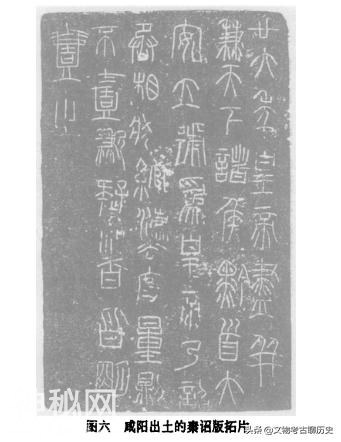 廿六年皇帝盡并
兼天下諸侯黔首大
安立號為皇帝乃詔
丞相狀綰法度量則
不壹歉疑者皆明
壹之
秘网
图六 咸阳出土的秦诏版拓片
头条@文物考古聊历史